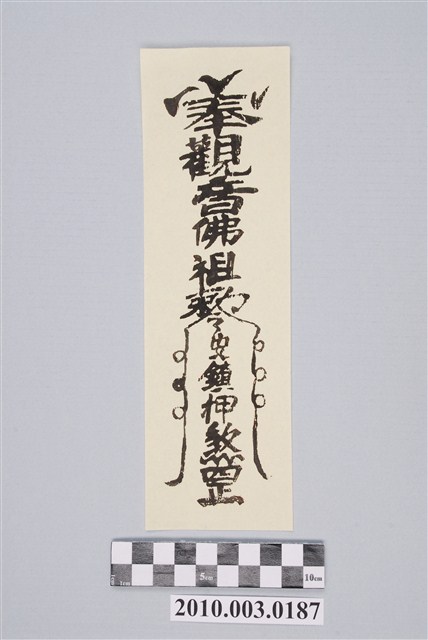 奉觀音佛祖勅令安鎮押煞罡
5cm
10cm
2010.003.0187